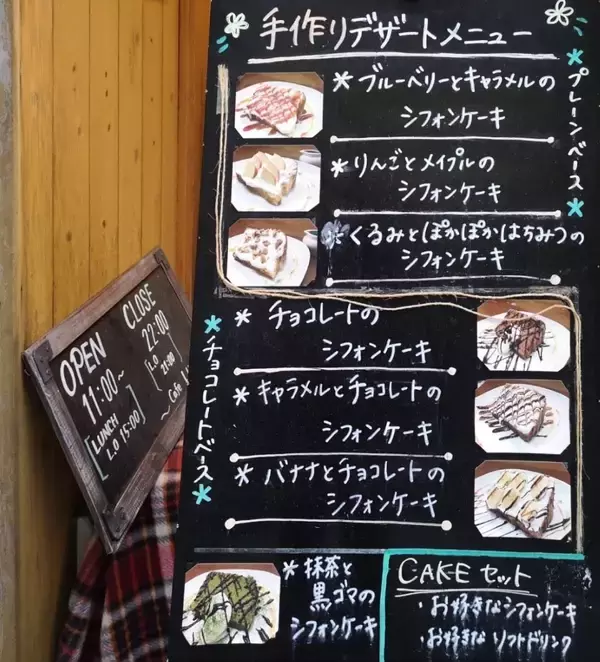 手作りデザートメニュー
*プレーンベース*
*ブルーベリーとキャラメルの
シフォンケーキ
*りんごとメイプルの
シフォンケーキ
*くるみとぽかぽかはちみつの
シフォンケーキ
*チョコレートベース*
*チョコレートの
シフォンケーキ
*キャラメルとチョコレートの
シフォンケーキ
*バナナとチョコレートの
シフォンケーキ
*抹茶と
黒ゴマの
シフォンケーキ
CAKEセット
・お好きなシフォンケーキ
・お好きなソフトドリンク
OPEN
11:00~
LUNCH
L.O 15:00
CLOSE
22:00
L.O
21:00
~Cafe